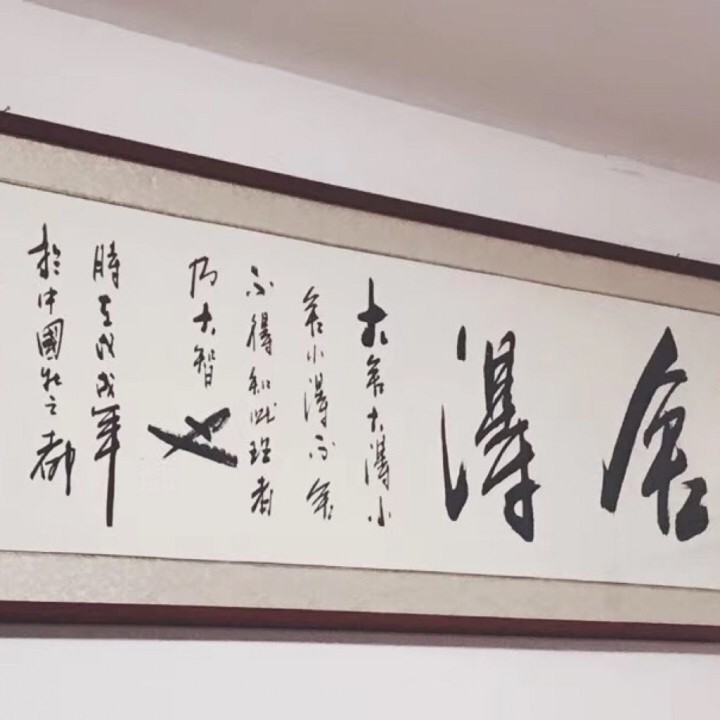 舍得
大舍大得小
舍小得不舍
不得知此理者
乃大智也
時在戊戌年
於中國之都